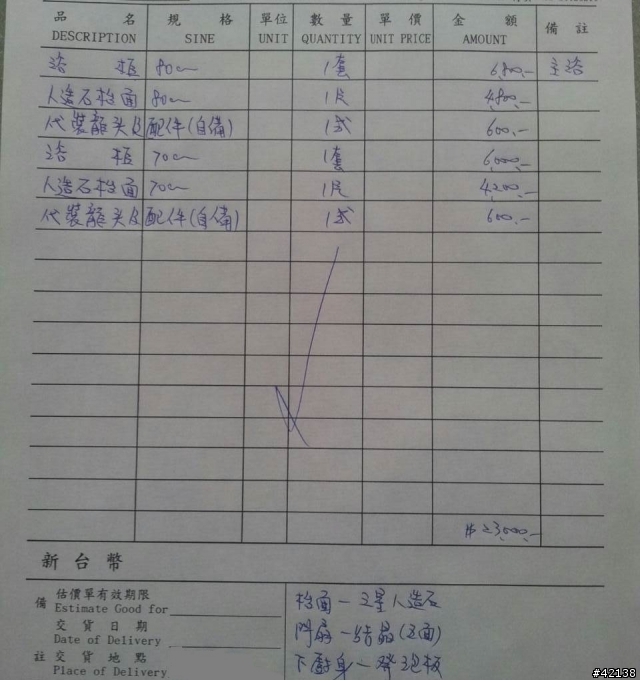 品 名 規 格 單位 數 量 單 價 金 額 備 註
DESCRIPTION SINE UNIT QUANTITY UNIT PRICE AMOUNT
80cm 1套 6,800.-
人造石枱面 80cm 1片 4,800.-
代裝龍头及配件(自備) 1式 600.-
70cm 1套 6,000.-
人造石枱面 70cm 1片 4,200.-
代裝龍头及配件(自備) 1式 600.-
23,000.-
新台幣
備註
估價單有效期限
Estimate Good for
交貨日期
Date of Delivery
交貨地點
Place of Delivery
枱面-三星人造石
門扇-結晶(五面)
下廚身-發泡板
#42138